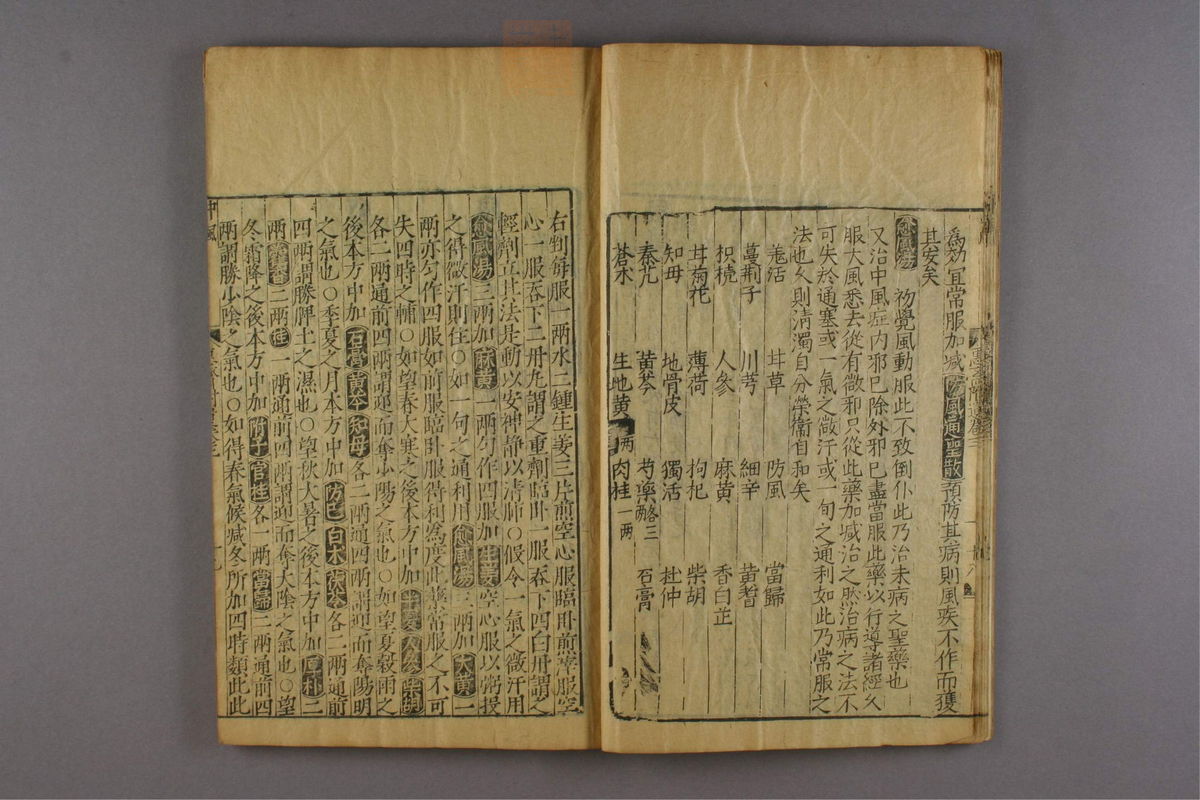 為効宜常服加减防風通聖散預防其病則風疾不作而獲
其安矣
愈風湯 初覺風動服此不致倒仆此乃治未病之聖藥也
又治中風症内邪已除外邪已盡當服此藥以行導諸經久
服大風悉去從有微邪只從此藥加减治之然治病之法不
可失於通塞或一氣之微汗或一旬之通利如此乃常服之
法也久則清濁自分榮衛自和矣
羗活 甘草 防風 當歸
蔓荆子 川芎 細辛 黄耆
枳梹 人參 麻黄 香白芷
甘菊花 薄荷 枸杞 柴胡
知母 地骨皮 獨活 杜仲
秦艽 黄芩 芍藥各三兩 石膏
蒼朮 生地黄 兩 肉桂一兩
右㕮每服一兩水二鍾生姜三片煎空心服臨卧煎滓服空
心一服吞下二丹丸謂之重劑臨卧一服吞下四白丹謂之
輕劑立其法是動以安神静以清肺○假令一氣之微汗用
愈風湯三兩加麻黄一兩勻作四服加生姜空心服以粥投
之得微汗則住○如一旬之通利用愈風湯三兩加大黄一
兩亦勻作四服如前服臨卧服得利為度此藥常服之不可
失四時之輔○如望春大寒之後本方中加半夏人參柴胡
各二兩通前四兩謂迎而奪小陽之氣也○如望夏穀雨之
後本方中加石膏黄芩知母各二兩通四兩謂迎而奪陽明
之氣也○季夏之月本方中加防己白朮茯苓各二兩通前
四兩謂勝脾土之濕也○望秋大暑之後本方中加厚朴二
兩藿香二兩桂一兩通前四兩謂迎而奪大陰之氣也○望
冬霜降之後本方中加附子官桂各一兩當歸二兩通前四
兩謂勝小陰之氣也○如得春氣候减冬所加四時類此此
中風